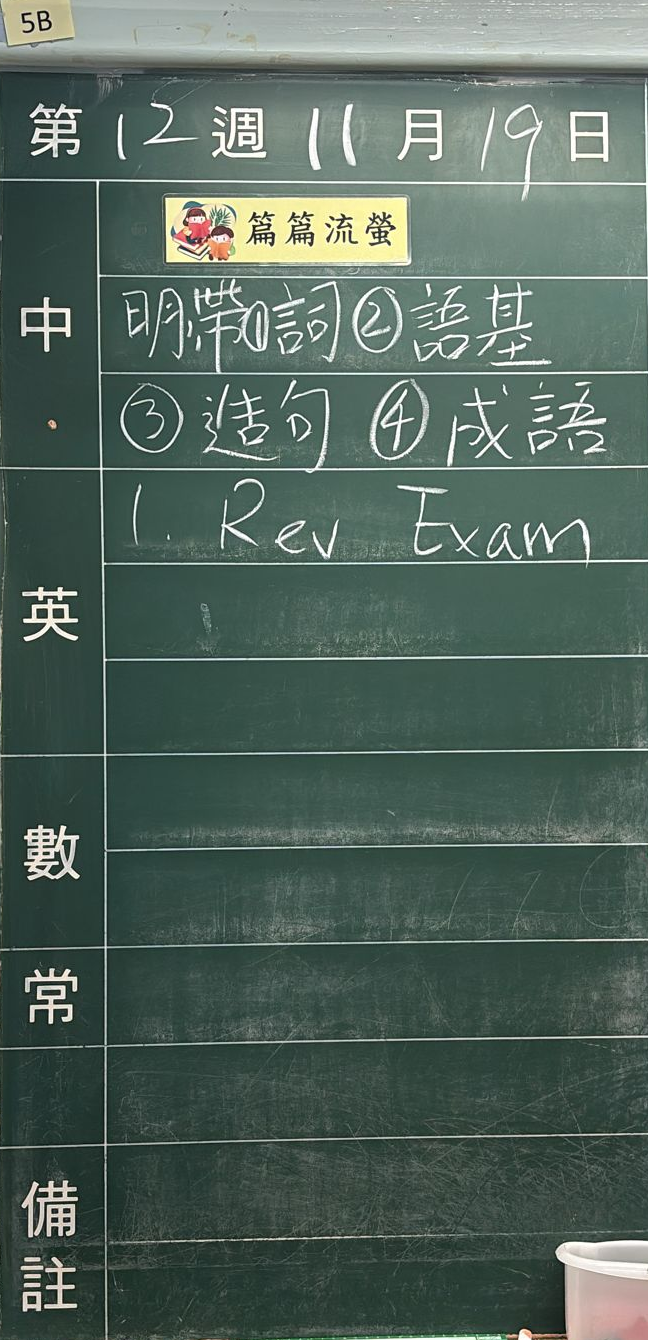 5B
第 12 週 11 月 19 日
篇篇流螢
中
明帶①詞②語基
③造句 ④成語
英
1. Rev Exam
數
常
備註